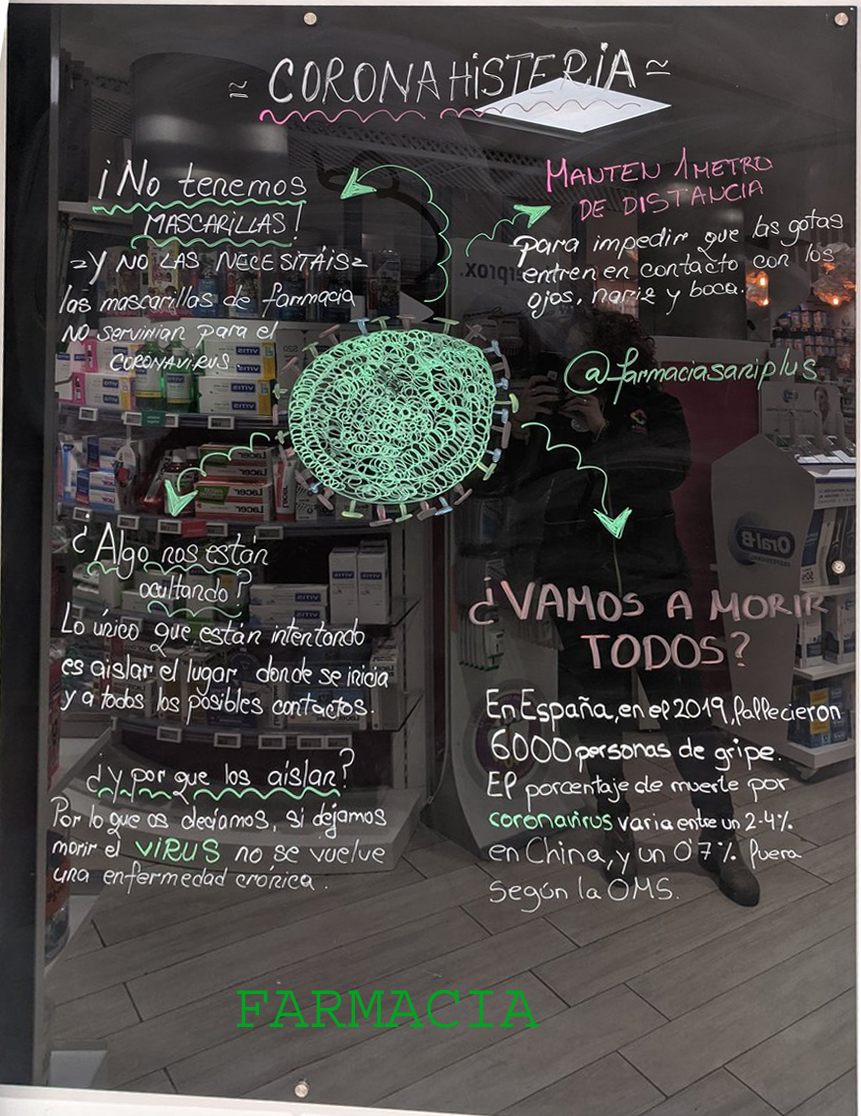 ≈ CORONAHISTERIA ≈
¡No tenemos
MASCARILLAS!
=Y NO LAS NECESITÁIS=
las mascarillas de farmacia
NO servirian para el
CORONAVIRUS
MANTEN 1 METRO
DE DISTANCIA
para impedir que las gotas
entren en contacto con los
ojos, nariz y boca.
@farmaciasaniplus
¿Algo nos están
ocultando?
Lo único que están intentando
es aislar el lugar donde se inicia
y a todos los posibles contactos.
¿y por que los aislan?
Por lo que os decíamos, si dejamos
morir el VIRUS no se vuelve
una enfermedad crónica.
¿VAMOS A MORIR
TODOS?
En España, en el 2019, fallecieron
6000 personas de gripe.
El porcentaje de muerte por
coronavirus varia entre un 2-4%
en China, y un 0'7% fuera
según la OMS.
FARMACIA
VITIS
VITIS
VITIS
Lacer
Lacer
Lacer
VITIS
VITIS
Oral-B